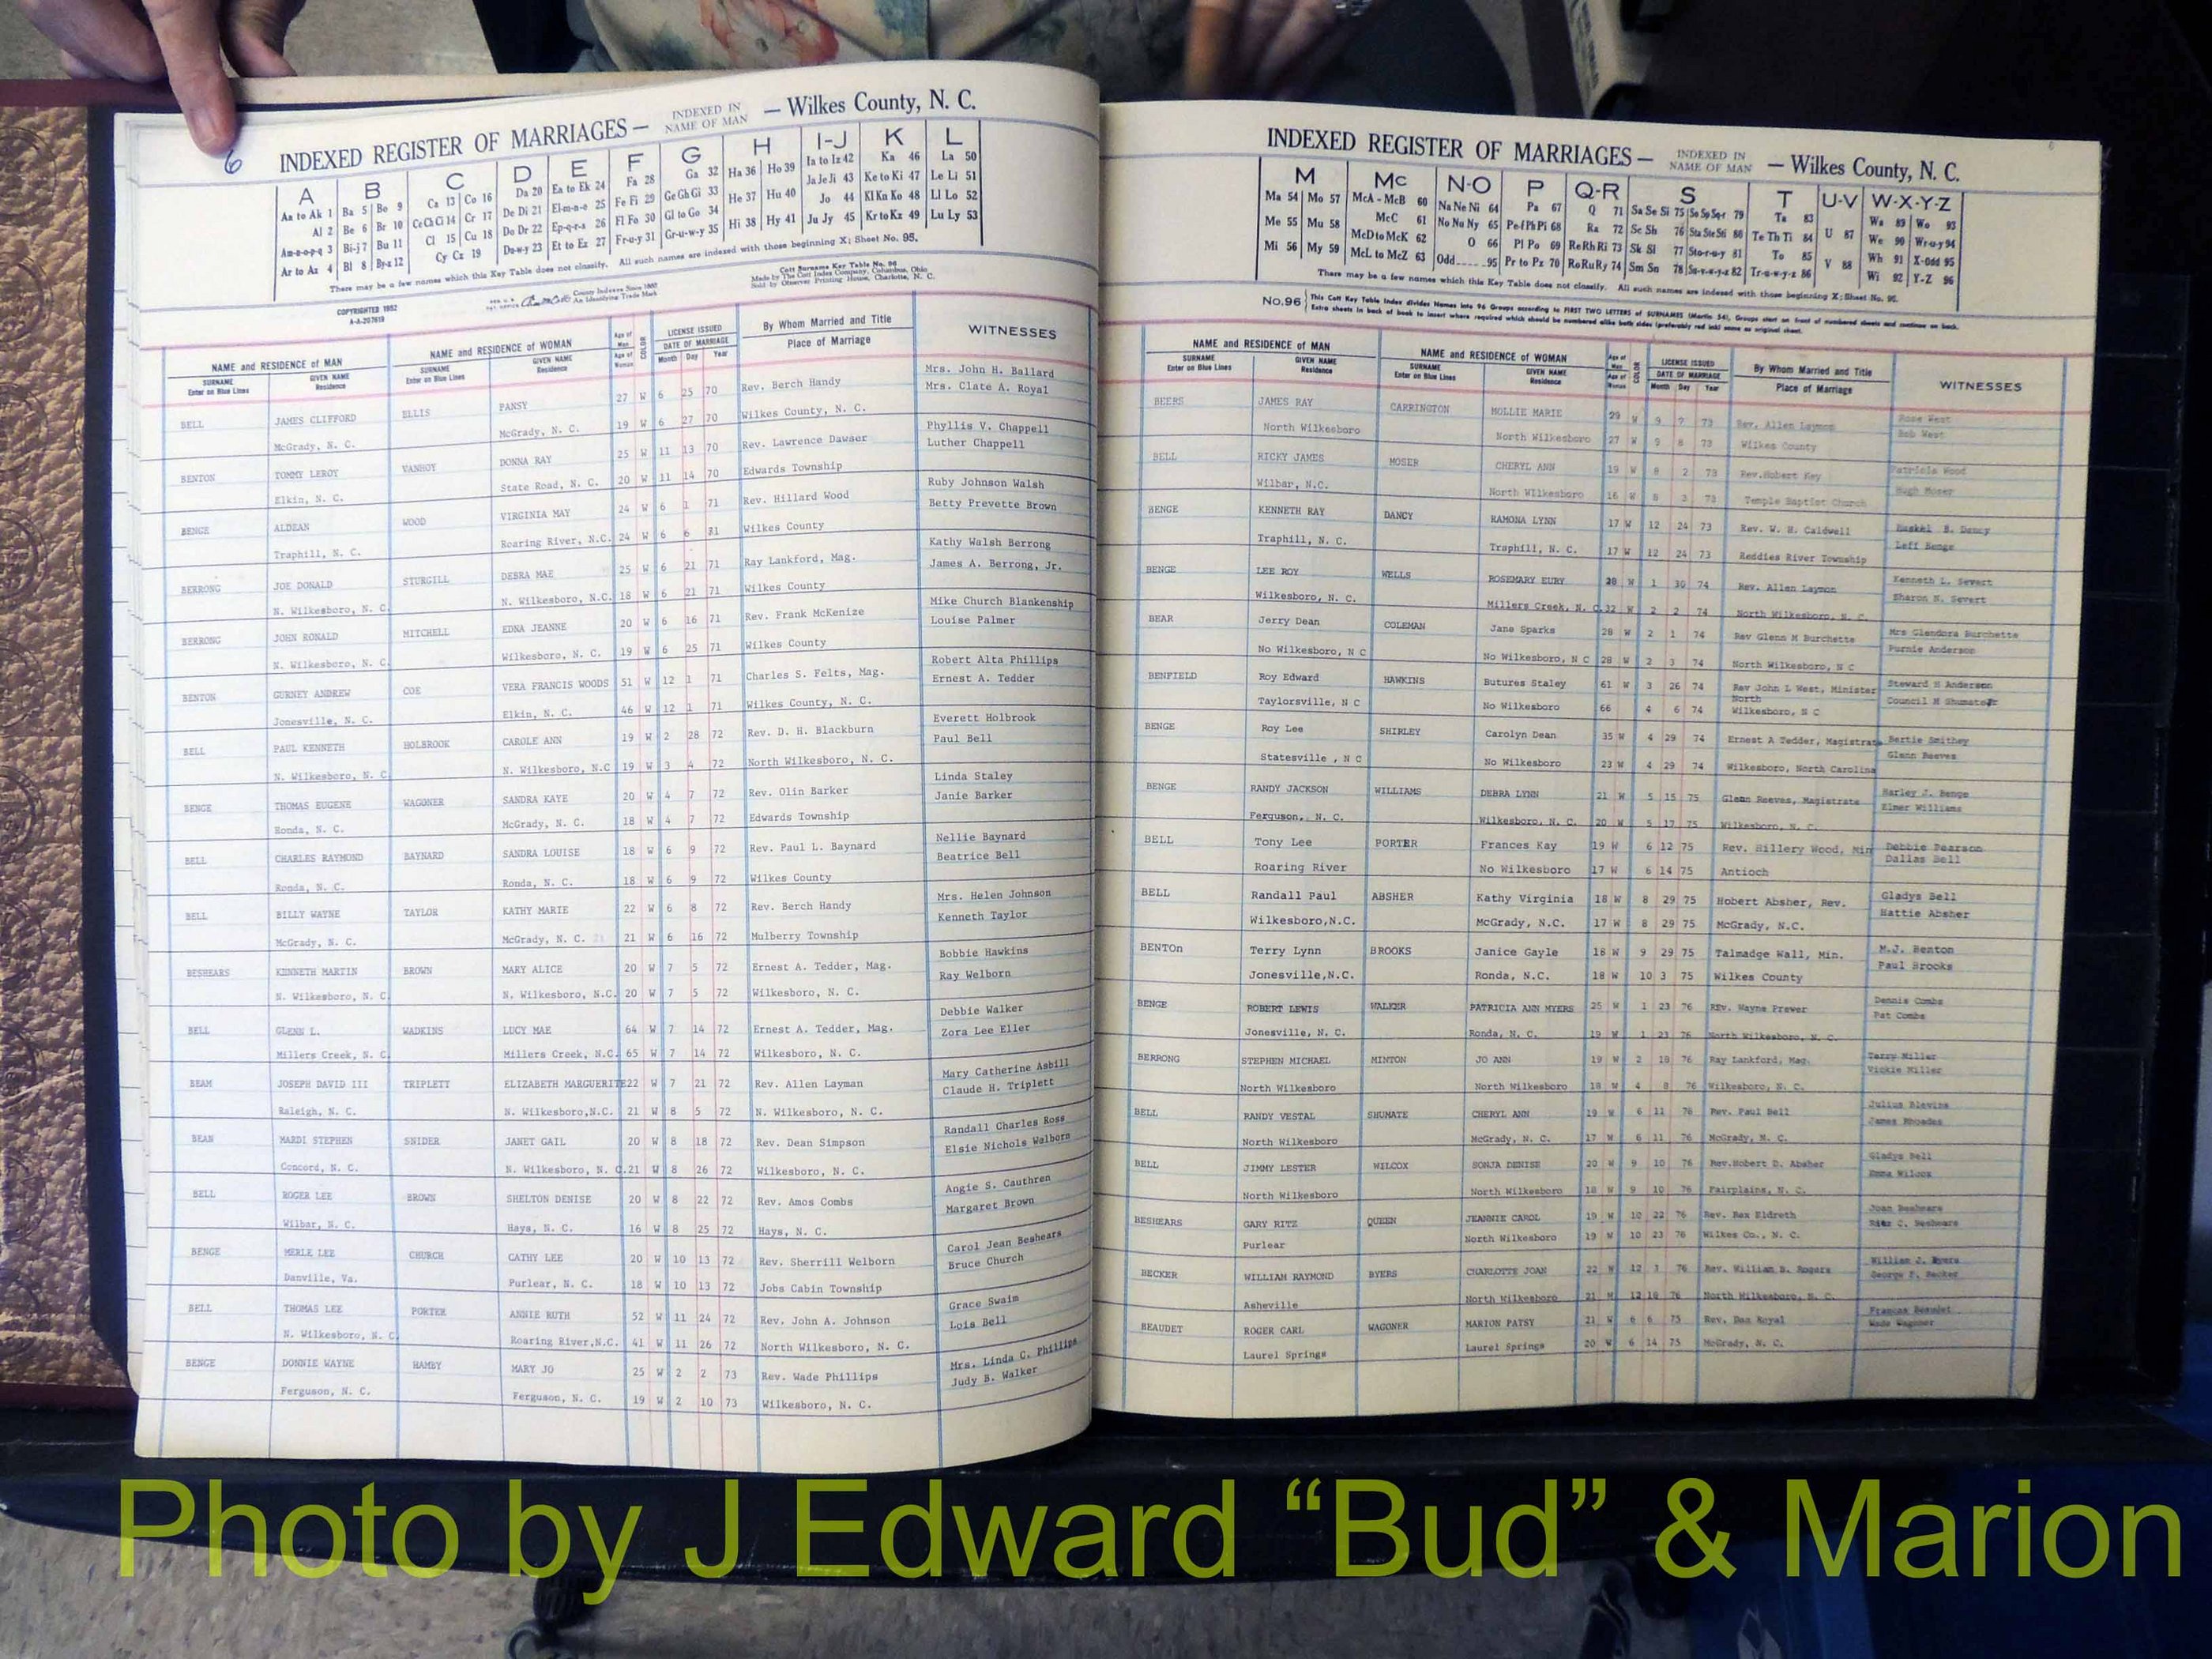 6
INDEXED REGISTER OF MARRIAGES — INDEXED IN NAME OF MAN — Wilkes County, N. C.
A B C D E F G H I-J K L
Aa to Ak 1 Ba 5 Be 9 Ca 13 Co 16 Da 20 Ea to Ek 24 Fa 28 Ga 32 Ha 36 Ho 39 Ia to Iz 42 Ka 46 La 50
Al 2 Be 6 Br 10 Ce Ch Ci 14 Cr 17 De Di 21 El-m-n-o 25 Fe Fi 29 Ge Gh Gi 33 He 37 Hu 40 Ja Je Ji 43 Ke to Ki 47 Le Li 51
Am-n-o-p-q 3 Bi-j 7 Bu 11 Cl 15 Cu 18 Do Dr 22 Ep-q-r-s 26 Fl Fo 30 Gl to Go 34 Hi 38 Hy 41 Jo 44 Kl Kn Ko 48 Ll Lo 52
Ar to Az 4 Bl 8 By-z 12 Cy Cz 19 Du-w-y 23 Et to Ez 27 Fr-u-y 31 Gr-u-w-y 35 Ju Jy 45 Kr to Kz 49 Lu Ly 53
There may be a few names which this Key Table does not classify. All such names are indexed with those beginning X; Sheet No. 95.
COPYRIGHTED 1952
A-A-207618
County Indexes Since 1888
An Identifying Trade Mark
Cott Surname Key Table No. 96
Made by The Cott Index Company, Columbus, Ohio
Sold by Observer Printing House, Charlotte, N. C.
NAME and RESIDENCE of MAN NAME and RESIDENCE of WOMAN Age of Man COLOR LICENSE ISSUED By Whom Married and Title WITNESSES
SURNAME GIVEN NAME SURNAME GIVEN NAME Age of Woman DATE OF MARRIAGE Place of Marriage
Enter on Blue Lines Residence Enter on Blue Lines Residence Month Day Year
BELL JAMES CLIFFORD ELLIS PANSY 27 W 6 25 70 Rev. Berch Handy Mrs. John H. Ballard
McGrady, N. C. McGrady, N. C. 19 W 6 27 70 Wilkes County, N. C. Mrs. Clate A. Royal
BENTON TOMMY LEROY VANHOY DONNA RAY 25 W 11 13 70 Rev. Lawrence Dawser Phyllis V. Chappell
Elkin, N. C. State Road, N. C. 20 W 11 14 70 Edwards Township Luther Chappell
BENGE ALDEAN WOOD VIRGINIA MAY 24 W 6 1 71 Rev. Hillard Wood Ruby Johnson Walsh
Traphill, N. C. Roaring River, N.C. 24 W 6 6 81 Wilkes County Betty Prevette Brown
BERRONG JOE DONALD STURGILL DEBRA MAE 25 W 6 21 71 Ray Lankford, Mag. Kathy Walsh Berrong
N. Wilkesboro, N. C. N. Wilkesboro, N.C. 18 W 6 21 71 Wilkes County James A. Berrong, Jr.
BERRONG JOHN RONALD MITCHELL EDNA JEANNE 20 W 6 16 71 Rev. Frank McKenize Mike Church Blankenship
N. Wilkesboro, N. C. Wilkesboro, N. C. 19 W 6 25 71 Wilkes County Louise Palmer
BENTON GURNEY ANDREW COE VERA FRANCIS WOODS 51 W 12 1 71 Charles S. Felts, Mag. Robert Alta Phillips
Jonesville, N. C. Elkin, N. C. 46 W 12 1 71 Wilkes County, N. C. Ernest A. Tedder
BELL PAUL KENNETH HOLBROOK CAROLE ANN 19 W 2 28 72 Rev. D. H. Blackburn Everett Holbrook
N. Wilkesboro, N. C. N. Wilkesboro, N.C 19 W 3 4 72 North Wilkesboro, N. C. Paul Bell
BENGE THOMAS EUGENE WAGONER SANDRA KAYE 20 W 4 7 72 Rev. Olin Barker Linda Staley
Ronda, N. C. McGrady, N. C. 18 W 4 7 72 Edwards Township Janie Barker
BELL CHARLES RAYMOND BAYNARD SANDRA LOUISE 18 W 6 9 72 Rev. Paul L. Baynard Nellie Baynard
Ronda, N. C. Ronda, N. C. 18 W 6 9 72 Wilkes County Beatrice Bell
BELL BILLY WAYNE TAYLOR KATHY MARIE 22 W 6 8 72 Rev. Berch Handy Mrs. Helen Johnson
McGrady, N. C. McGrady, N. C. 21 W 6 16 72 Mulberry Township Kenneth Taylor
BESHEARS KENNETH MARTIN BROWN MARY ALICE 20 W 7 5 72 Ernest A. Tedder, Mag. Bobbie Hawkins
N. Wilkesboro, N. C. N. Wilkesboro, N.C. 20 W 7 5 72 Wilkesboro, N. C. Ray Welborn
BELL GLENN L. WADKINS LUCY MAE 64 W 7 14 72 Ernest A. Tedder, Mag. Debbie Walker
Millers Creek, N. C. Millers Creek, N.C. 65 W 7 14 72 Wilkesboro, N. C. Zora Lee Eller
BEAM JOSEPH DAVID III TRIPLETT ELIZABETH MARGUERITE 22 W 7 21 72 Rev. Allen Layman Mary Catherine Asbill
Raleigh, N. C. N. Wilkesboro,N.C. 21 W 8 5 72 N. Wilkesboro, N. C. Claude H. Triplett
BEAN MARDI STEPHEN SNIDER JANET GAIL 20 W 8 18 72 Rev. Dean Simpson Randall Charles Ross
Concord, N. C. N. Wilkesboro, N. C. 21 W 8 26 72 Wilkesboro, N. C. Elsie Nichols Welborn
BELL ROGER LEE BROWN SHELTON DENISE 20 W 8 22 72 Rev. Amos Combs Angie S. Cauthren
Wilbar, N. C. Hays, N. C. 16 W 8 25 72 Hays, N. C. Margaret Brown
BENGE MERLE LEE CHURCH CATHY LEE 20 W 10 13 72 Rev. Sherrill Welborn Carol Jean Beshears
Danville, Va. Purlear, N. C. 18 W 10 13 72 Jobs Cabin Township Bruce Church
BELL THOMAS LEE PORTER ANNIE RUTH 52 W 11 24 72 Rev. John A. Johnson Grace Swaim
N. Wilkesboro, N. C. Roaring River,N.C. 41 W 11 26 72 North Wilkesboro, N. C. Lois Bell
BENGE DONNIE WAYNE HAMBY MARY JO 25 W 2 2 73 Rev. Wade Phillips Mrs. Linda C. Phillips
Ferguson, N. C. Ferguson, N. C. 19 W 2 10 73 Wilkesboro, N. C. Judy B. Walker
6
INDEXED REGISTER OF MARRIAGES — INDEXED IN NAME OF MAN — Wilkes County, N. C.
M Mc N-O P Q-R S T U-V W-X-Y-Z
Ma 54 Mo 57 McA - McB 60 Na Ne Ni 64 Pa 67 Q 71 Sa Se Si 75 So Sp Sq-r 79 Ta 83 U 87 Wa 89 Wo 93
Me 55 Mu 58 McC 61 No Nu Ny 65 Pe-f Ph Pi 68 Ra 72 Sc Sh 76 Sta Ste Sti 80 Te Th Ti 84 V 88 We 90 Wr-u-y 94
Mi 56 My 59 McD to McK 62 O 66 Pl Po 69 Re Rh Ri 73 Sk Sl 77 Sto-r-u-y 81 To 85 Wh 91 X-Odd 95
McL to McZ 63 Odd 95 Pr to Pz 70 Ro Ru Ry 74 Sm Sn 78 Su-v-w-y-z 82 Tr-u-w-y-z 86 Wi 92 Y-Z 96
There may be a few names which this Key Table does not classify. All such names are indexed with those beginning X; Sheet No. 95.
No.96 This Cott Key Table Index divides Names into 96 Groups according to FIRST TWO LETTERS of SURNAMES (Martin 54). Groups start on front of numbered sheets and continue on back.
Extra sheets in back of book to insert where required which should be numbered alike both sides (preferably red ink) same as original sheet.
NAME and RESIDENCE of MAN NAME and RESIDENCE of WOMAN Age of Man COLOR LICENSE ISSUED By Whom Married and Title WITNESSES
SURNAME GIVEN NAME SURNAME GIVEN NAME Age of Woman DATE OF MARRIAGE Place of Marriage
Enter on Blue Lines Residence Enter on Blue Lines Residence Month Day Year
BEERS JAMES RAY CARRINGTON MOLLIE MARIE 29 W 9 7 73 Rev. Allen Laymon Rose West
North Wilkesboro North Wilkesboro 27 W 9 8 73 Wilkes County Bob West
BELL RICKY JAMES MOSER CHERYL ANN 19 W 8 2 73 Rev.Hobert Key Patricia Wood
Wilbar, N.C. North Wilkesboro 16 W 8 3 73 Temple Baptist Church Hugh Moser
BENGE KENNETH RAY DANCY RAMONA LYNN 17 W 12 24 73 Rev. W. H. Caldwell Haskel B. Dancy
Traphill, N. C. Traphill, N. C. 17 W 12 24 73 Reddies River Township Leff Benge
BENGE LEE ROY WELLS ROSEMARY EURY 28 W 1 30 74 Rev. Allen Laymon Kenneth L. Severt
Wilkesboro, N. C. Millers Creek, N. C. 32 W 2 2 74 North Wilkesboro, N. C. Sharon N. Severt
BEAR Jerry Dean COLEMAN Jane Sparks 28 W 2 1 74 Rev Glenn M Burchette Mrs Glendora Burchette
No Wilkesboro, N C No Wilkesboro, N C 28 W 2 3 74 North Wilkesboro, N C Purnie Anderson
BENFIELD Roy Edward HAWKINS Butures Staley 61 W 3 26 74 Rev John L West, Minister Steward H Anderson
Taylorsville, N C No Wilkesboro 66 4 6 74 North Wilkesboro, N C Council M Shumate
BENGE Roy Lee SHIRLEY Carolyn Dean 35 W 4 29 74 Ernest A Tedder, Magistrate Bertie Smithey
Statesville , N C No Wilkesboro 23 W 4 29 74 Wilkesboro, North Carolina Glenn Reeves
BENGE RANDY JACKSON WILLIAMS DEBRA LYNN 21 W 5 15 75 Glenn Reeves, Magistrate Harley J. Benge
Ferguson,. N. C. Wilkesboro, N. C. 20 W 5 17 75 Wilkesboro, N. C. Elmer Williams
BELL Tony Lee PORTER Frances Kay 19 W 6 12 75 Rev. Hillery Wood, Min Debbie Pearson
Roaring River No Wilkesboro 17 W 6 14 75 Antioch Dallas Bell
BELL Randall Paul ABSHER Kathy Virginia 18 W 8 29 75 Hobert Absher, Rev. Gladys Bell
Wilkesboro,N.C. McGrady, N.C. 17 W 8 29 75 McGrady, N.C. Hattie Absher
BENTOn Terry Lynn BROOKS Janice Gayle 18 W 9 29 75 Talmadge Wall, Min. M.J. Benton
Jonesville,N.C. Ronda, N.C. 18 W 10 3 75 Wilkes County Paul Brooks
BENGE ROBERT LEWIS WALKER PATRICIA ANN MYERS 25 W 1 23 76 REv. Wayne Prewer Dennis Combs
Jonesville, N. C. Ronda, N. C. 19 W 1 23 76 North Wilkesboro, N. C. Pat Combs
BERRONG STEPHEN MICHAEL MINTON JO ANN 19 W 2 18 76 Ray Lankford, Mag. Terry Miller
North Wilkesboro North Wilkesboro 18 W 4 8 76 Wilkesboro, N. C. Vickie Miller
BELL RANDY VESTAL SHUMATE CHERYL ANN 19 W 6 11 76 Rev. Paul Bell Julius Blevins
North Wilkesboro McGrady, N. C. 17 W 6 11 76 McGrady, N. C. James Rhoades
BELL JIMMY LESTER WILCOX SONJA DENISE 20 W 9 10 76 Rev.Hobert D. Absher Gladys Bell
North Wilkesboro North Wilkesboro 18 W 9 10 76 Fairplains, N. C. Emma Wilcox
BESHEARS GARY RITZ QUEEN JEANNIE CAROL 19 W 10 22 76 Rev. Rex Eldreth Joan Beshears
Purlear North Wilkesboro 19 W 10 23 76 Wilkes Co., N. C. Ritz C. Beshears
BECKER WILLIAM RAYMOND BYERS CHARLOTTE JOAN 22 W 12 1 76 Rev. William B. Rogers William J. Byers
Asheville North Wilkesboro 21 W 12 18 76 North Wilkesboro, N. C. George F. Becker
BEAUDET ROGER CARL WAGONER MARION PATSY 21 W 6 6 75 Rev. Dan Royal Frances Beaudet
Laurel Springs Laurel Springs 20 W 6 14 75 McGrady, N. C. Wade Wagoner
Photo by J Edward “Bud” & Marion